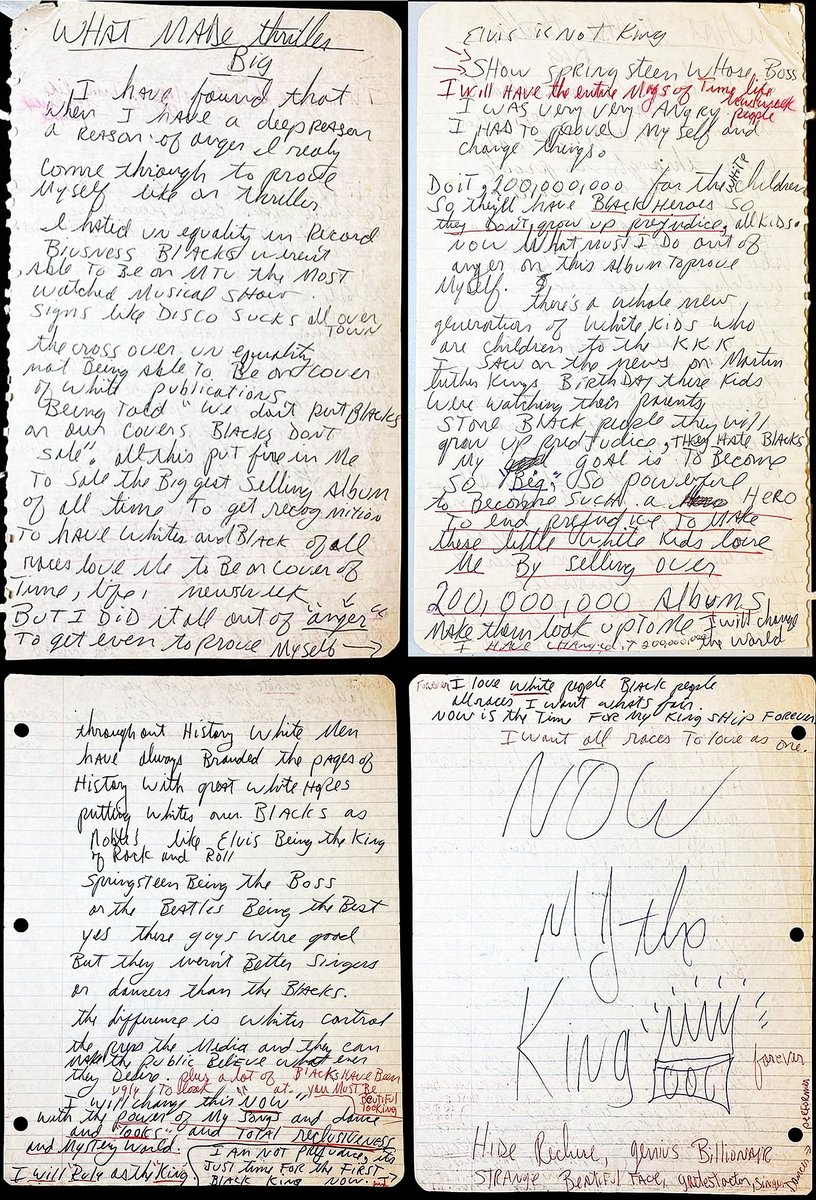 WHAT MADE thriller
Big
I have found that
when I have a deep reason
a reason of anger I realy
come through to prove
Myself like on thriller
I hated un equality in Record
Biusness Blacks weren't
Able To Be on MTV the Most
watched Musical Show
signs like DISCO SUCKS all over
TOWN
the cross over un equality
not Being able to Be on cover
of white publications
Being Told "we don't put Blacks
on our covers Blacks Don't
Sale". all this put fire in Me
To Sale the Biggest Selling Album
of all time To get recognition
To have whites and Black of all
races love Me to Be on cover of
Time, life, newsweek
BUT I DID it all out of "anger"
To get even to prove Myself →
Elvis is Not King
→ SHOW SPRINGSTEEN WHOSE BOSS
I Will HAVE the entire Mags of Time life
newsweek
people
I was very very Angry
I HAD To prove My self and
change things.
Do it, 200,000,000 for the white children
So they'll have BLACK Heroes So
they Don't grow up prejudice, all KIDS.
now What must I Do out of
anger on this Album To prove
Myself.
there's a whole new
generation of white KIDS who
are children to the KKK
I SAW on the news on Martin
luther Kings BIRTHDAY these Kids
were watching their parents
STONE BLACK people they will
grow up predjudice, they Hate BLACKS
My goal is To Become
So "Big", So powerful
to Become Such a HERO
To end prejudice To MAKE
these little white Kids love
Me By selling over
200,000,000 Albums
Make them look up to me I will change
the world
I HAVE CHANGED IT 200,000,000
throughout History White Men
have always Branded the pages of
History with great white Hopes
putting whites over Blacks as
Nobles like Elvis Being the King
of Rock and Roll
Springsteen Being the Boss
or the Beatles Being the Best
yes these guys were good
But they weren't Better singers
or dancers than the Blacks.
the difference is whites control
the press the Media and they can
make the public Believe what ever
they Desire plus a lot of BLACKS HAVE BEEN
ugly To look at. you MUST BE
Beutiful
looking
I will change this NOW"
with the power of My Songs and dance
and "looks" and TOTAL reclusiveness
and Mystery World.
I Will Rule as the King
I AM NOT Prejudice, its
JUST time FOR the FIRST
BLACK KING NOW.
Forever I love White people BLACK people
all races I want whats fair.
NOW is the Time FOR My KING SHIP FOREVER
I want all races To love as one.
NOW
My the
King
forever
Hide Recluse, genius Billionaire
STRANGE, Beutiful Face, gratest actor, singer
Dancer
performer